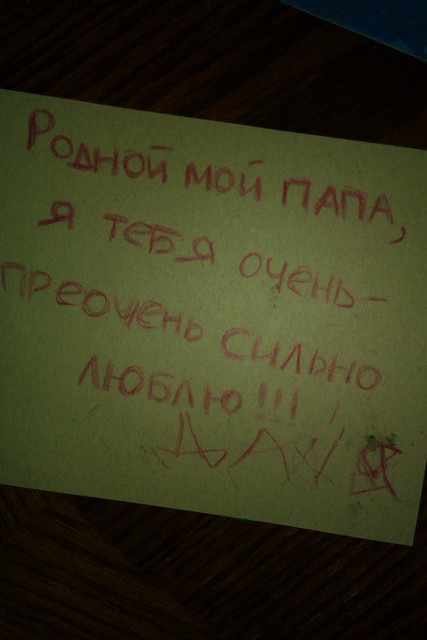 Родной мой ПАПА,
я тебя очень-
преочень сильно
люблю!!!
ДАНЯ